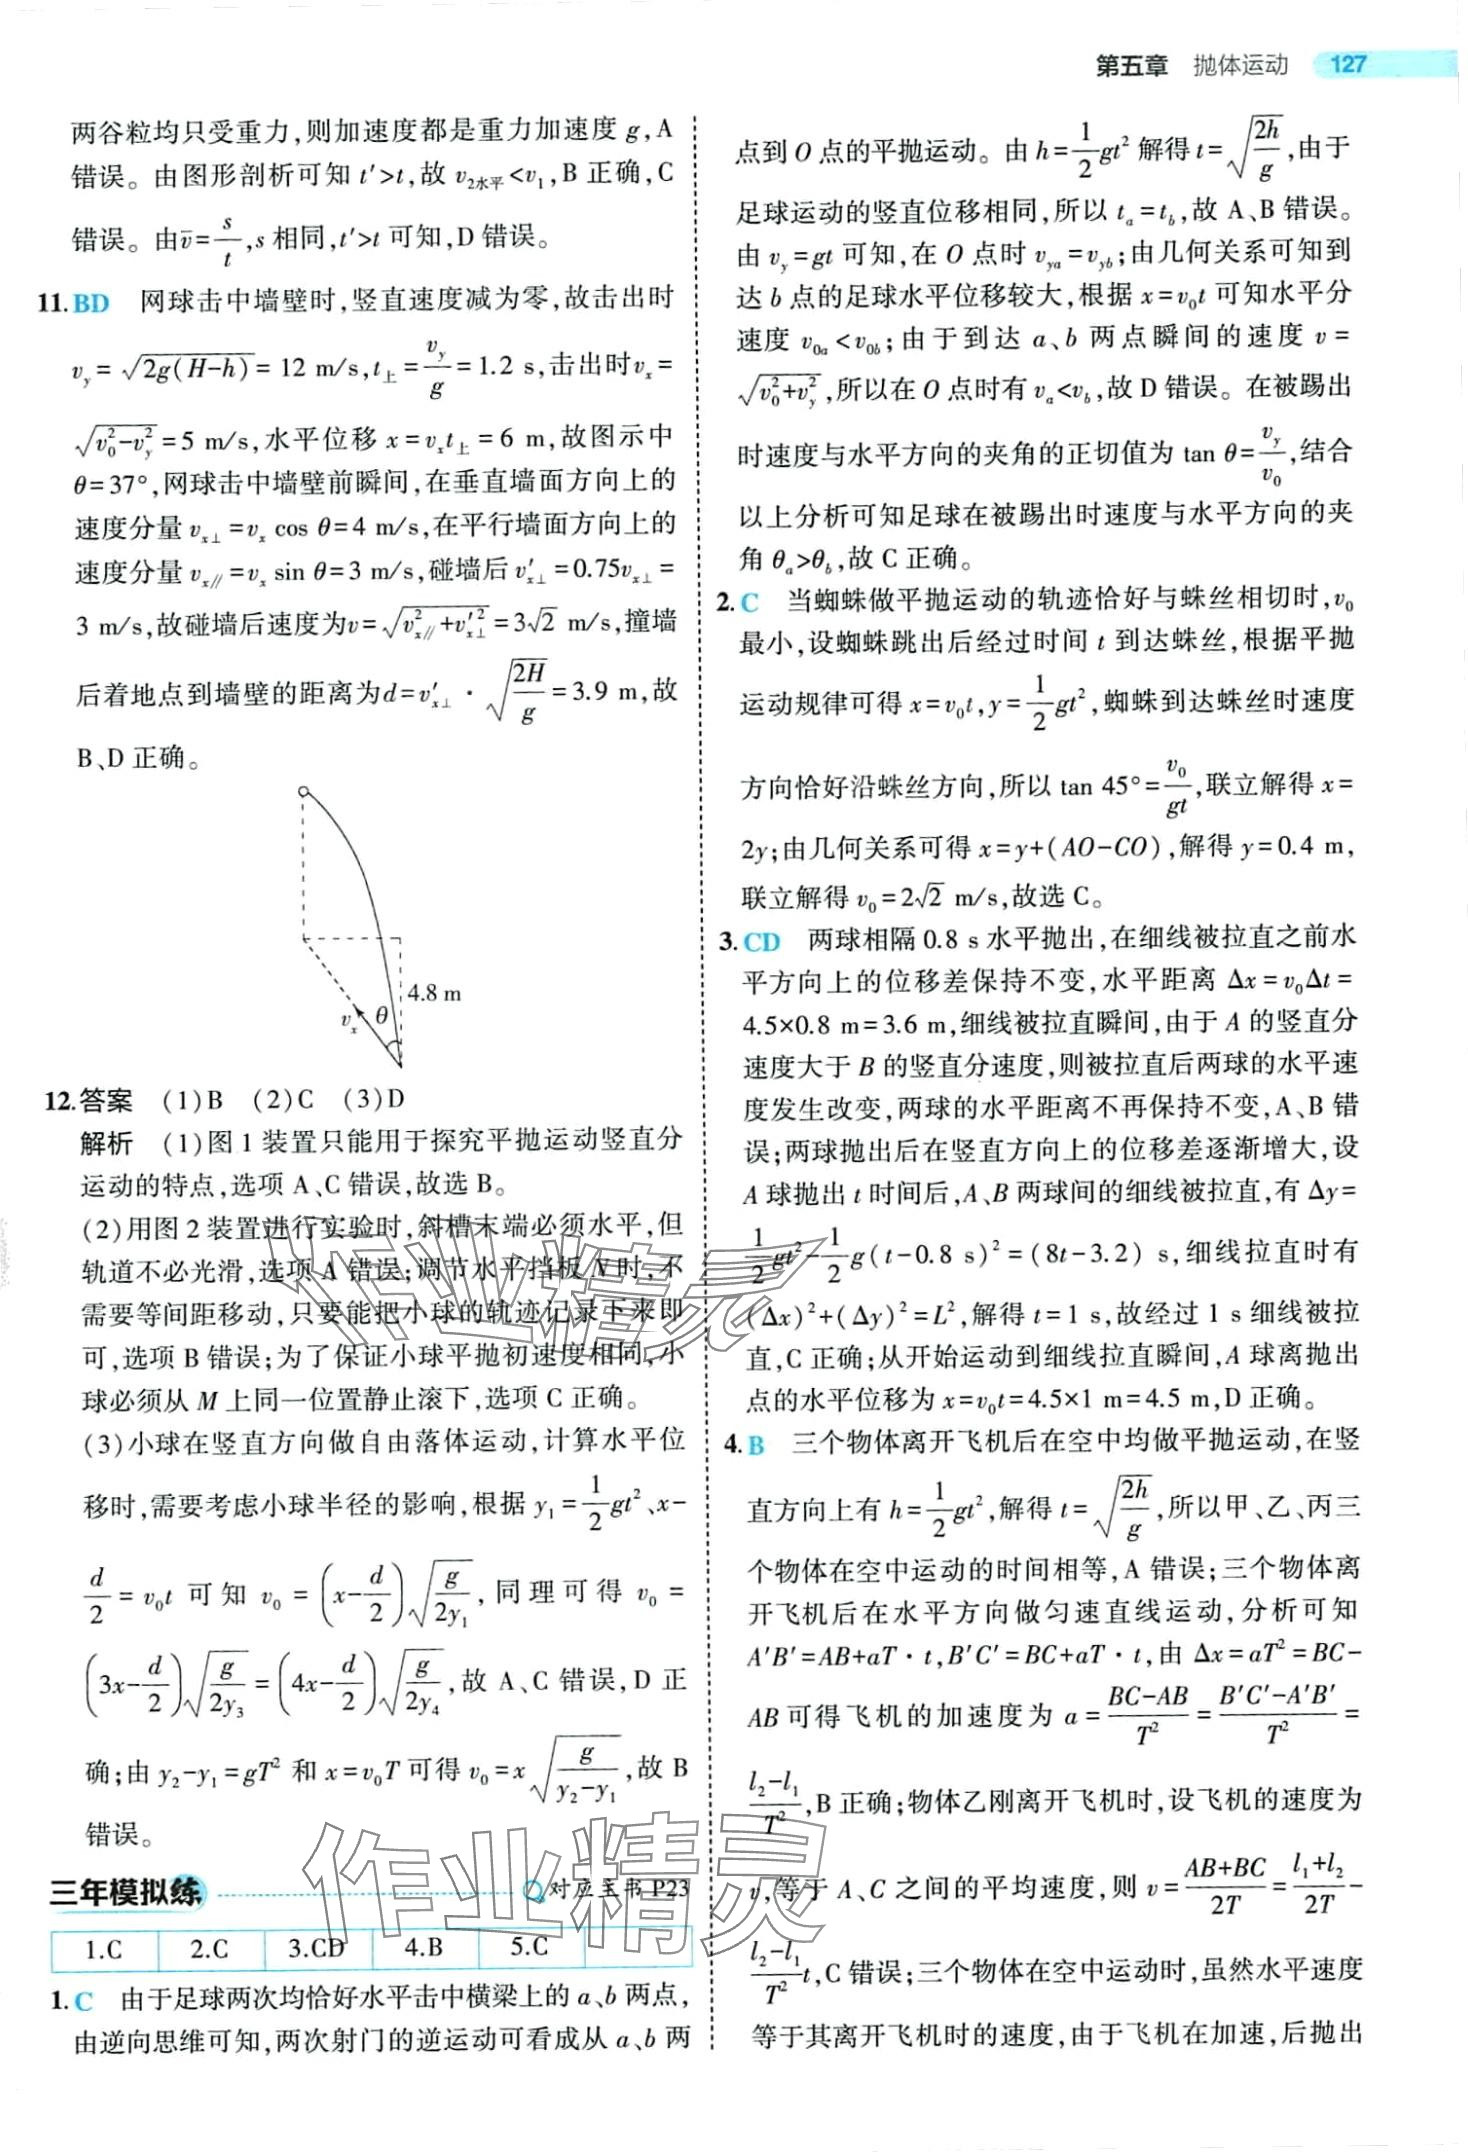 第五章 抛体运动 127
两谷粒均只受重力,则加速度都是重力加速度 g,A
错误。由图形剖析可知 t'>t,故 v₂水平<v₁,B 正确,C
错误。由v̄=s/t,s 相同,t'>t 可知,D 错误。
11.BD 网球击中墙壁时,竖直速度减为零,故击出时
v_y=√(2g(H-h))=12 m/s,t上=v_y/g=1.2 s,击出时v_x=
√(v₀²-v_y²)=5 m/s,水平位移 x=v_x t上=6 m,故图示中
θ=37°,网球击中墙壁前瞬间,在垂直墙面方向上的
速度分量 v_x⊥=v_x cos θ=4 m/s,在平行墙面方向上的
速度分量 v_x∥=v_x sin θ=3 m/s,碰墙后 v'_x⊥=0.75v_x⊥=
3 m/s,故碰墙后速度为v=√(v_x∥²+v'_x⊥²)=3√2 m/s,撞墙
后着地点到墙壁的距离为d=v'_x⊥·√(2H/g)=3.9 m,故
B、D 正确。
4.8 m
v_x θ
12.答案 (1)B (2)C (3)D
解析 (1)图 1 装置只能用于探究平抛运动竖直分
运动的特点,选项 A、C 错误,故选 B。
(2)用图 2 装置进行实验时,斜槽末端必须水平,但
轨道不必光滑,选项 A 错误;调节水平挡板 N 时,不
需要等间距移动,只要能把小球的轨迹记录下来即
可,选项 B 错误;为了保证小球平抛初速度相同,小
球必须从 M 上同一位置静止滚下,选项 C 正确。
(3)小球在竖直方向做自由落体运动,计算水平位
移时,需要考虑小球半径的影响,根据 y₁=1/2gt²、x-
d/2=v₀t 可知 v₀=(x-d/2)√(g/2y₁),同理可得 v₀=
(3x-d/2)√(g/2y₃)=(4x-d/2)√(g/2y₄),故 A、C 错误,D 正
确;由 y₂-y₁=gT² 和 x=v₀T 可得 v₀=x√(g/(y₂-y₁)),故 B
错误。
三年模拟练 对应主书 P23
1.C 2.C 3.CD 4.B 5.C
1.C 由于足球两次均恰好水平击中横梁上的 a、b 两点,
由逆向思维可知,两次射门的逆运动可看成从 a、b 两
点到 O 点的平抛运动。由 h=1/2gt² 解得 t=√(2h/g),由于
足球运动的竖直位移相同,所以 t_a=t_b,故 A、B 错误。
由 v_y=gt 可知,在 O 点时 v_ya=v_yb;由几何关系可知到
达 b 点的足球水平位移较大,根据 x=v₀t 可知水平分
速度 v₀a<v₀b;由于到达 a、b 两点瞬间的速度 v=
√(v₀²+v_y²),所以在 O 点时有 v_a<v_b,故 D 错误。在被踢出
时速度与水平方向的夹角的正切值为 tan θ=v_y/v₀,结合
以上分析可知足球在被踢出时速度与水平方向的夹
角 θ_a>θ_b,故 C 正确。
2.C 当蜘蛛做平抛运动的轨迹恰好与蛛丝相切时,v₀
最小,设蜘蛛跳出后经过时间 t 到达蛛丝,根据平抛
运动规律可得 x=v₀t,y=1/2gt²,蜘蛛到达蛛丝时速度
方向恰好沿蛛丝方向,所以 tan 45°=v₀/gt,联立解得 x=
2y;由几何关系可得 x=y+(AO-CO),解得 y=0.4 m,
联立解得 v₀=2√2 m/s,故选 C。
3.CD 两球相隔 0.8 s 水平抛出,在细线被拉直之前水
平方向上的位移差保持不变,水平距离 Δx=v₀Δt=
4.5×0.8 m=3.6 m,细线被拉直瞬间,由于 A 的竖直分
速度大于 B 的竖直分速度,则被拉直后两球的水平速
度发生改变,两球的水平距离不再保持不变,A、B 错
误;两球抛出后在竖直方向上的位移差逐渐增大,设
A 球抛出 t 时间后,A、B 两球间的细线被拉直,有 Δy=
1/2gt²-1/2g(t-0.8 s)²=(8t-3.2) s,细线拉直时有
(Δx)²+(Δy)²=L²,解得 t=1 s,故经过 1 s 细线被拉
直,C 正确;从开始运动到细线拉直瞬间,A 球离抛出
点的水平位移为 x=v₀t=4.5×1 m=4.5 m,D 正确。
4.B 三个物体离开飞机后在空中均做平抛运动,在竖
直方向上有 h=1/2gt²,解得 t=√(2h/g),所以甲、乙、丙三
个物体在空中运动的时间相等,A 错误;三个物体离
开飞机后在水平方向做匀速直线运动,分析可知
A'B'=AB+aT·t,B'C'=BC+aT·t,由 Δx=aT²=BC-
AB 可得飞机的加速度为 a=(BC-AB)/T²=(B'C'-A'B')/T²=
(l₂-l₁)/T²,B 正确;物体乙刚离开飞机时,设飞机的速度为
v,等于 A、C 之间的平均速度,则 v=(AB+BC)/2T=(l₁+l₂)/2T-
(l₂-l₁)/T² t,C 错误;三个物体在空中运动时,虽然水平速度
等于其离开飞机时的速度,由于飞机在加速,后抛出
作业精灵
作业精灵